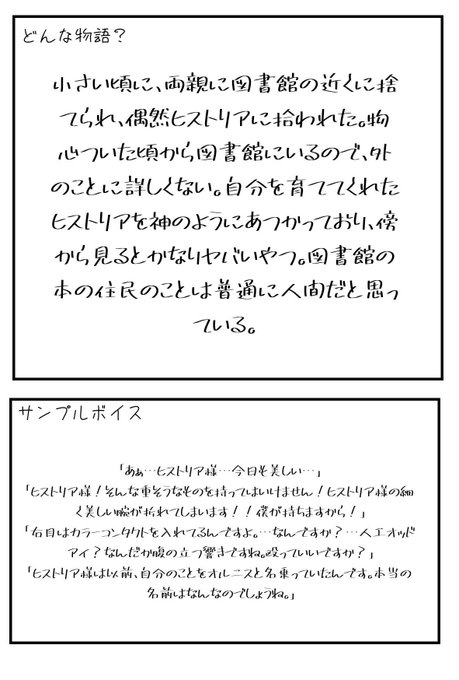 どんな物語?
小さい頃に、両親に図書館の近くに捨
てられ、偶然ヒストリアに拾われた。物
心ついた頃から図書館にいるので、外
のことに詳しくない。自分を育ててくれた
ヒストリアを神のようにあつかっており、傍
から見るとかなりヤバいやつ。図書館の
本の住民のことは普通に人間だと思っ
ている。
サンプルボイス
「あぁ…ヒストリア様…今日も美しい…」
「ヒストリア様!そんな重そうなものを持ってはいけません!ヒストリア様の細
く美しい腕が折れてしまいます!!僕が持ちますから!」
「右目はカラーコンタクトを入れてるんですよ。…なんですか?…人工オッド
アイ?なんだか腹の立つ響きですね。殴っていいですか?」
「ヒストリア様は以前、自分のことをオルニスと名乗っていたんです。本当の
名前はなんなのでしょうね。」